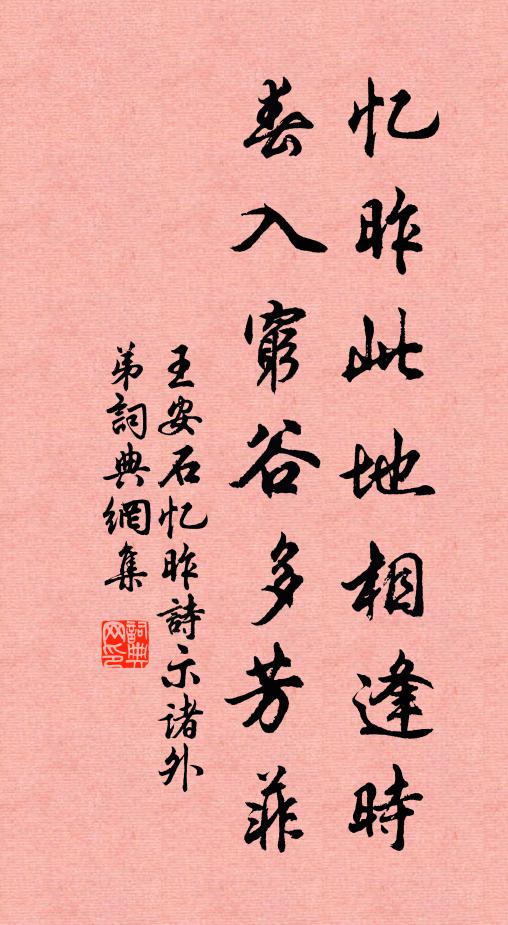 忆昨此地相逢時
春入窮谷多芳菲
王安石忆昨詩示诸外
弟詞典網集
詞典网印